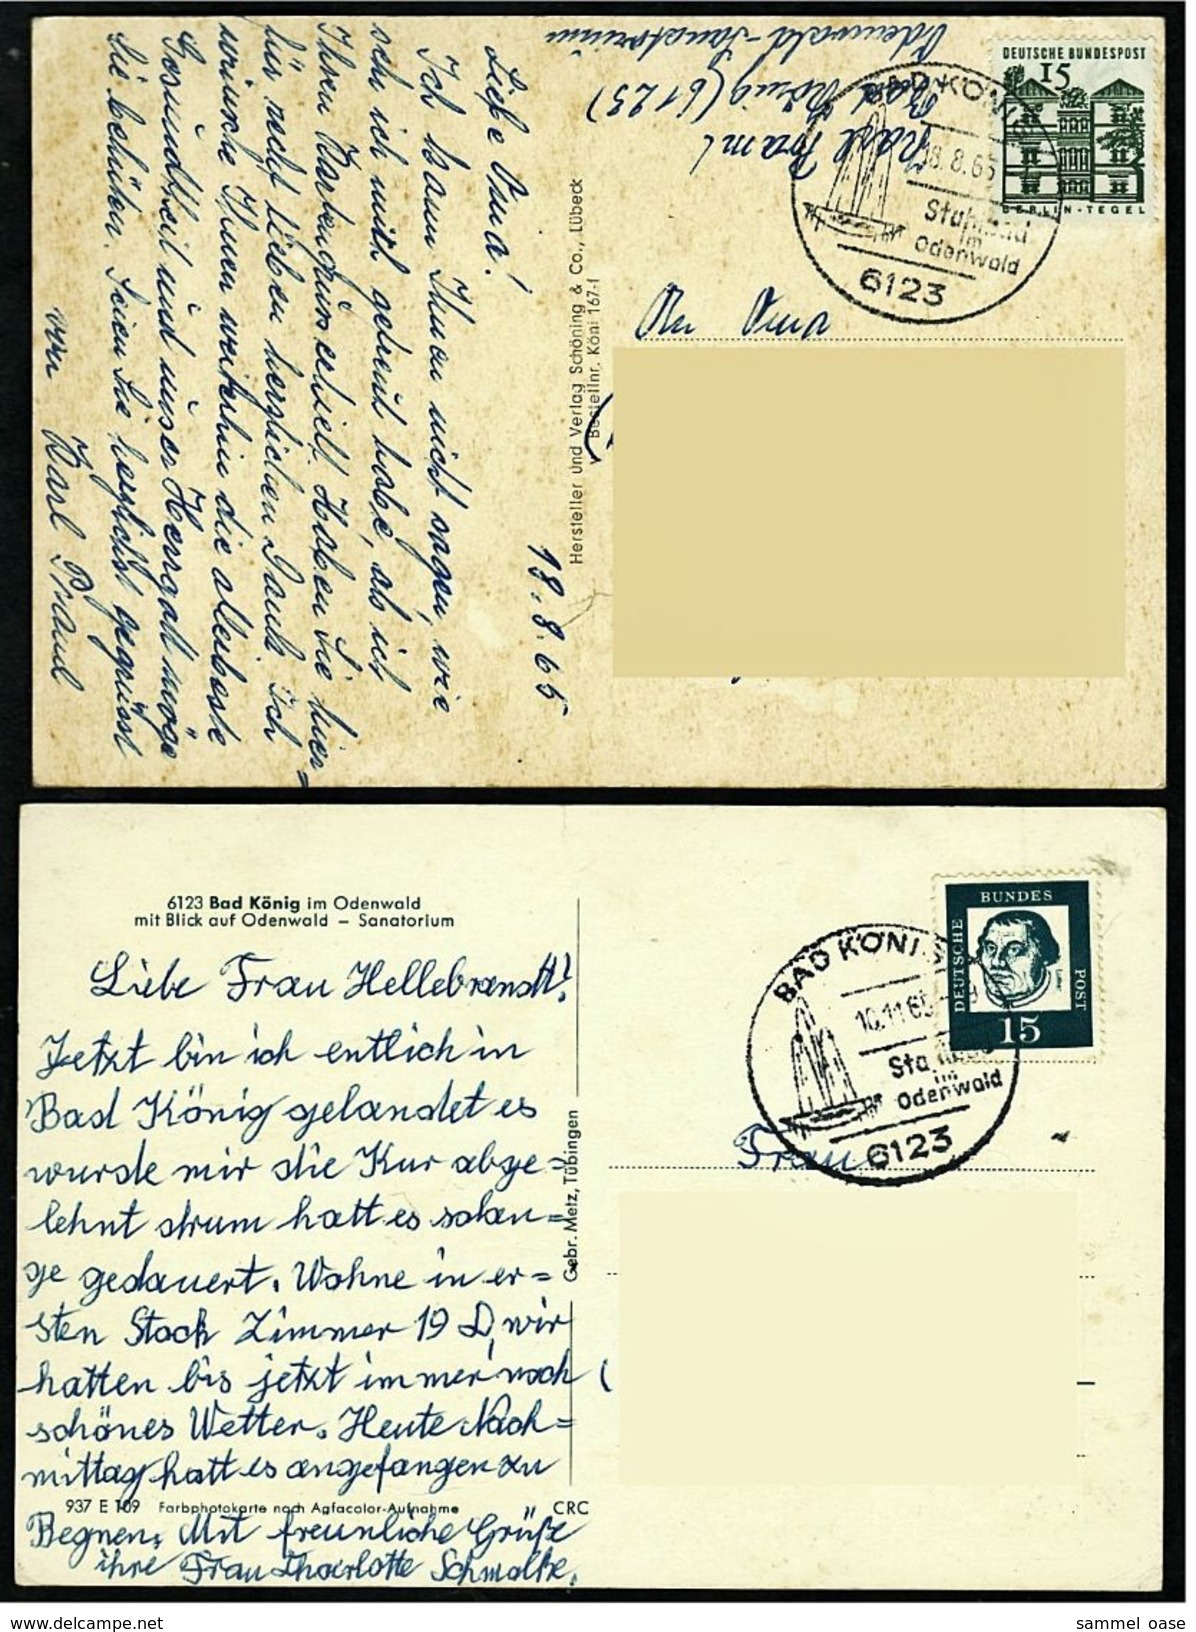 Liebe Oma!
18.8.65
Ich kann Ihnen nicht sagen, wie
sehr ich mich gefreut habe, als ich
Ihren Kartengruss erhielt. Haben Sie hier=
für recht lieben herzlichen Dank. Ich
wünsche Ihnen weiterhin die allerbeste
Gesundheit und unser Herrgott möge
Sie behüten. Seien Sie herzlichst gegrüsst
von Karl
Hersteller und Verlag Schöning & Co., Lübeck
Bestellnr. Köni 167-f
Karl
Bad König (6123)
Odenwald-Sanatorium
DEUTSCHE BUNDESPOST
15
BERLIN-TEGEL
BAD KÖNIG
18.8.65
Stahlbad
im
Odenwald
6123
Oma
6123 Bad König im Odenwald
mit Blick auf Odenwald – Sanatorium
Liebe Frau Hellebrandt!
Jetzt bin ich entlich in
Bad König gelandet es
wurde mir die Kur abge=
lehnt drum hatt es solan=
ge gedauert. Wohne in er=
sten Stock Zimmer 19 D, wir
hatten bis jetzt immer noch
schönes Wetter. Heute Nach=
mittag hatt es angefangen zu
937 E 109 Farbphotokarte nach Agfacolor-Aufnahme CRC
Regnen. Mit freunliche Grüße
ihre Frau Charlotte Schmalke.
Gebr. Metz, Tübingen
DEUTSCHE
BUNDES
POST
15
BAD KÖNIG
10.11.65
Stahlbad
im
Odenwald
6123
Frau
www.delcampe.net
sammel_oase